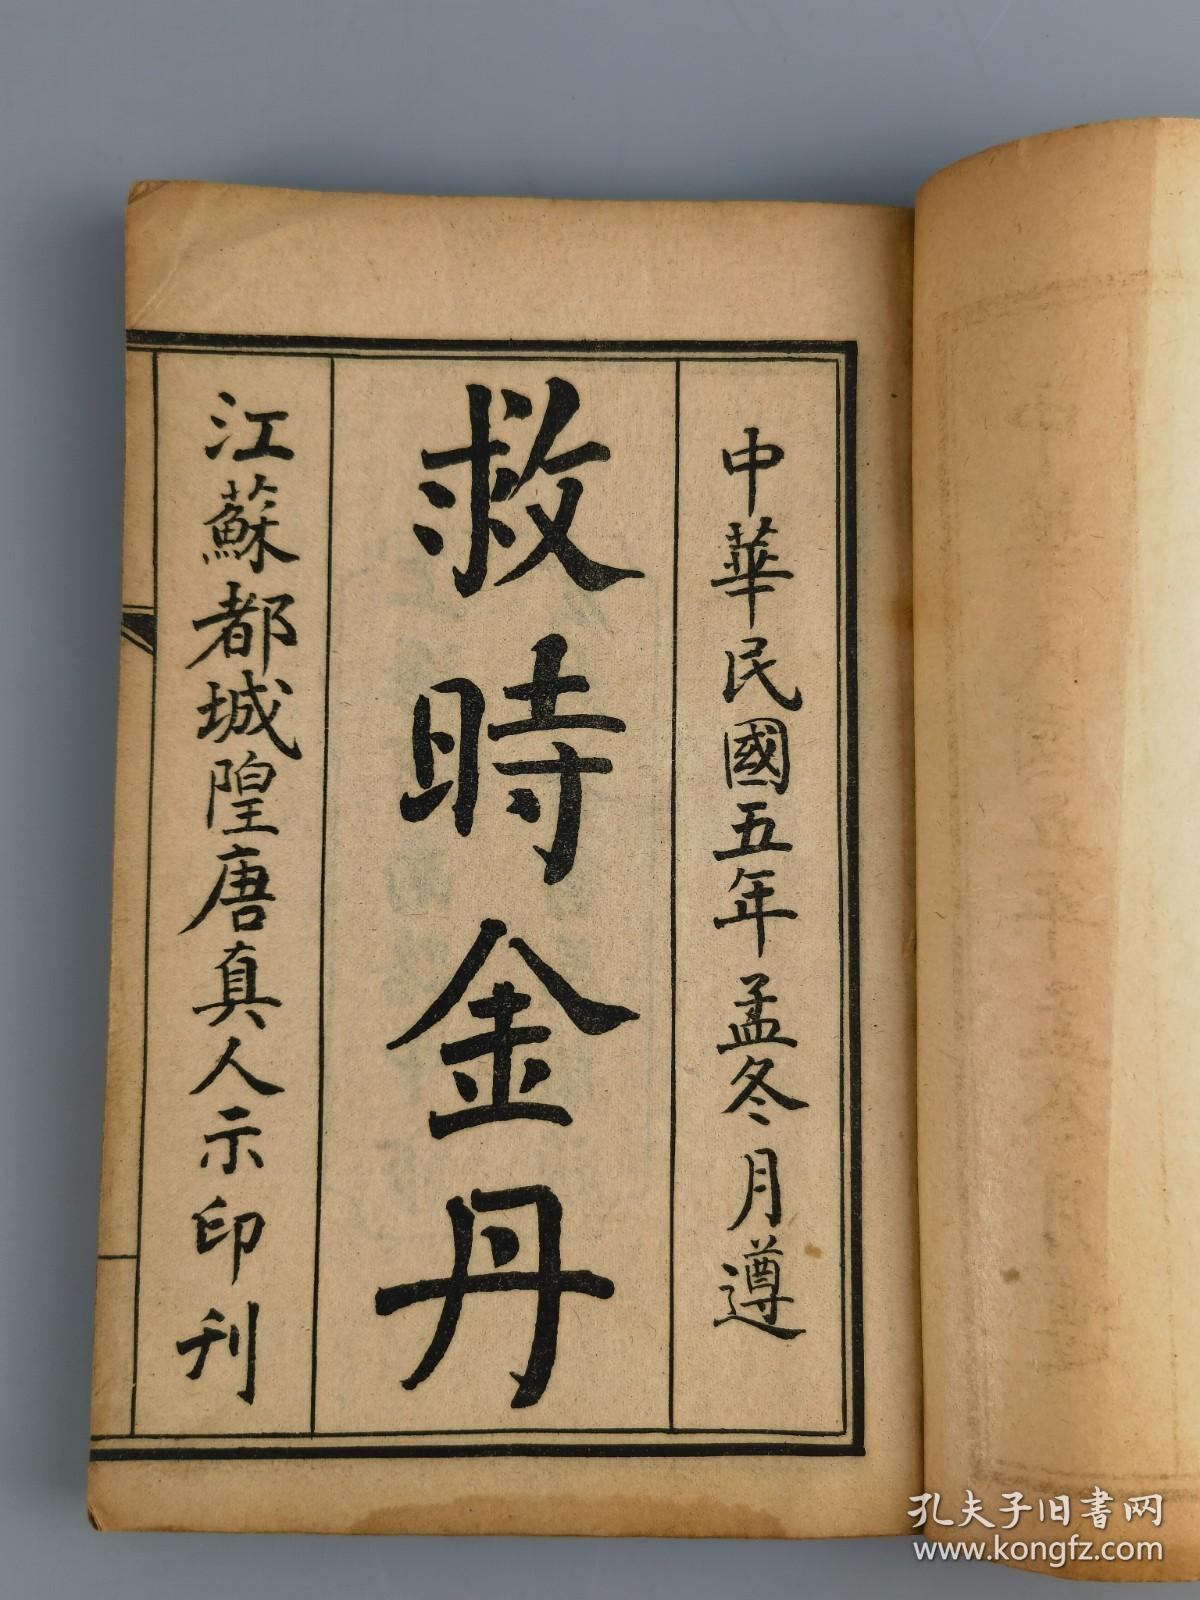 中華民國五年孟冬月遵
救時金丹
江蘇都城隍唐真人示印刊
孔夫子旧書网
www.kongfz.com